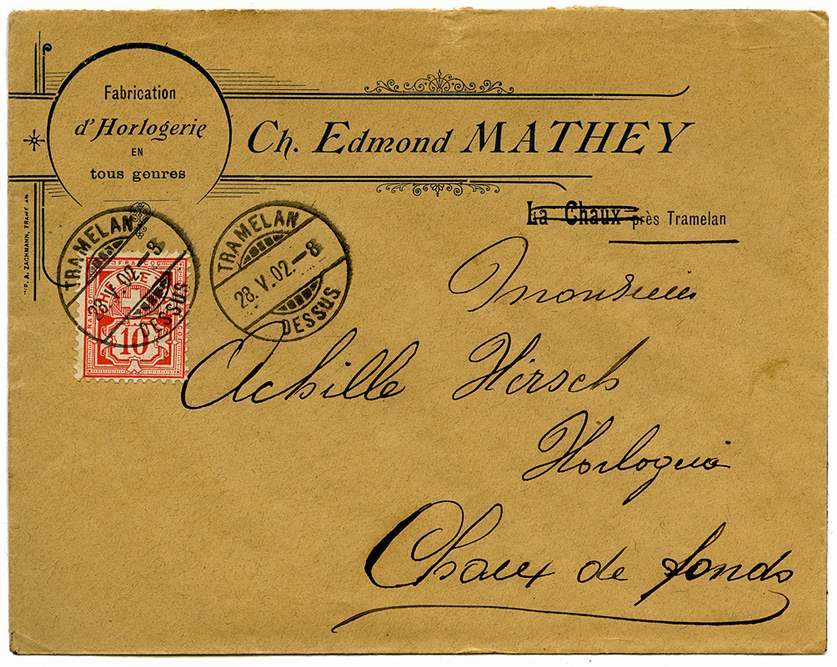 Fabrication
d'Horlogerie
EN
tous genres
Ch. Edmond MATHEY
La Chaux près Tramelan
TRAMELAN
28.V.02.–8
DESSUS
TRAMELAN
28.V.02.–8
DESSUS
FRANCO
10
A. ZACHMANN,
Monsieur
Achille Hirsch
Horlogerie
Chaux de fonds